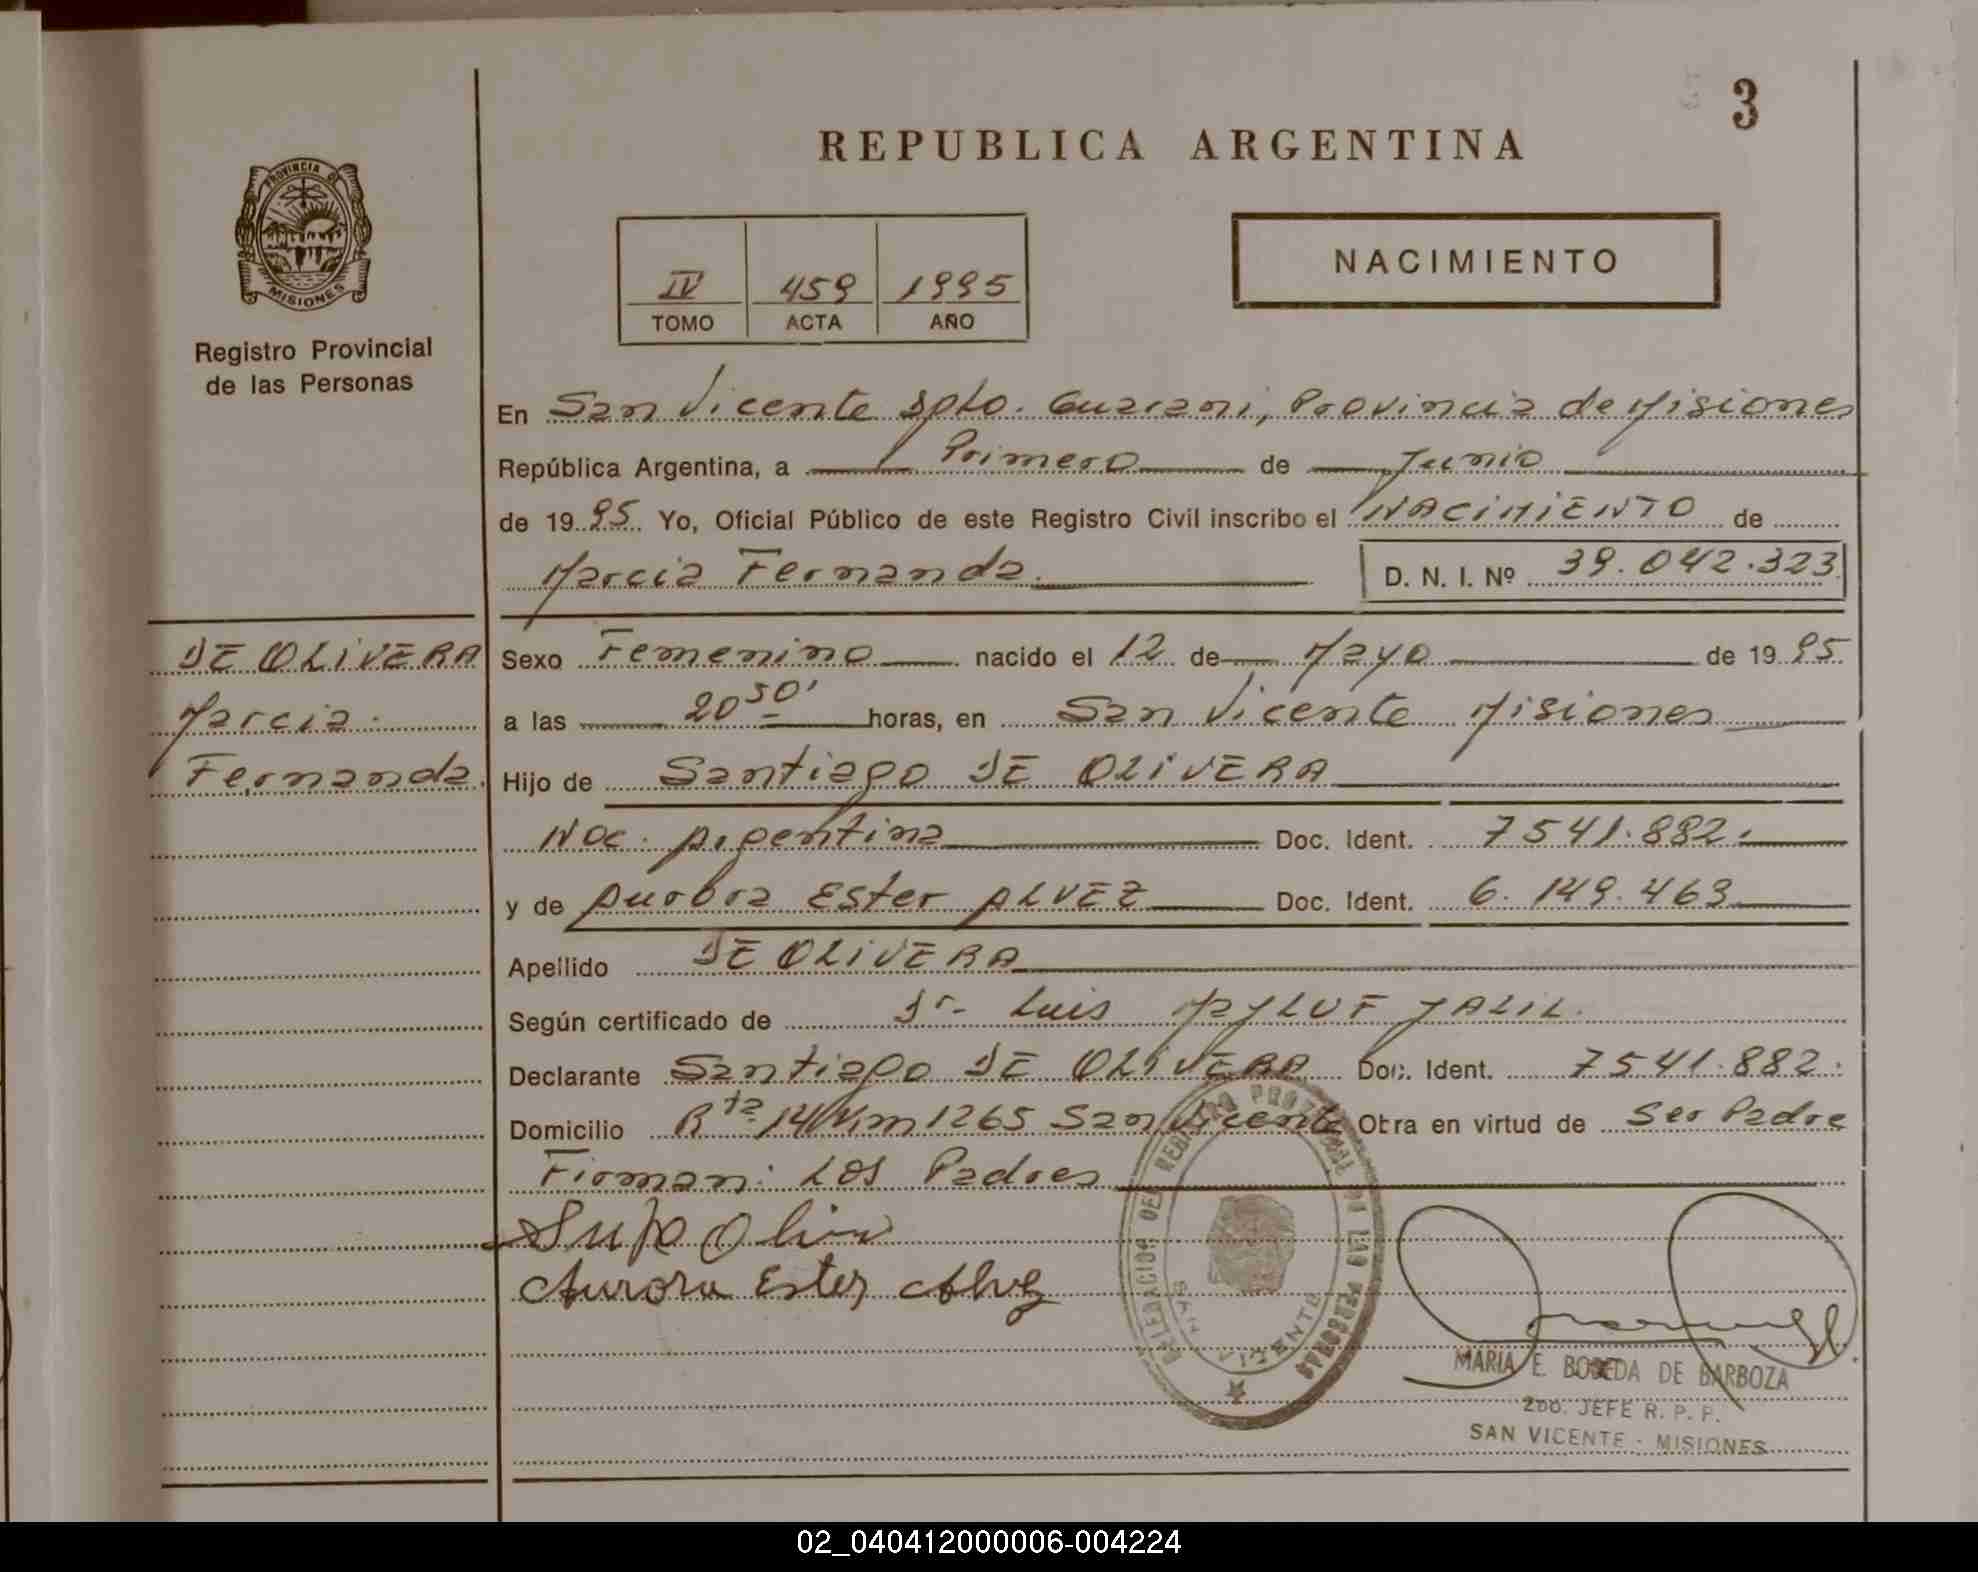 3
REPUBLICA ARGENTINA
PROVINCIA DE
MISIONES
Registro Provincial
de las Personas
IV 459 1995
TOMO ACTA AÑO
NACIMIENTO
En San Vicente Dpto. Guarani, Provincia de Misiones
República Argentina, a Primero de Junio
de 1995 Yo, Oficial Público de este Registro Civil inscribo el NACIMIENTO de
Marcia Fernanda. D. N. I. Nº 39.042.323
DE OLIVERA
Marcia.
Fernanda.
Sexo Femenino nacido el 12 de Mayo de 1995
a las 20 30' horas, en San Vicente Misiones
Hijo de Santiago DE OLIVERA
Nac. Argentina Doc. Ident. 7541.882.
y de Aurora Ester ALVEZ Doc. Ident. 6.149.463
Apellido DE OLIVERA
Según certificado de Dr- Luis JALIL.
Declarante Santiago DE OLIVERA Doc. Ident. 7541.882.
Domicilio Rta 14 Km 1265 San Vicente Obra en virtud de Ser Padre
Firman: Los Padres
Aurora Ester Alvez
DELEGACION DEL REGISTRO PROVINCIAL DE LAS PERSONAS
SAN VICENTE
MARIA E. DE BARBOZA
2DO. JEFE R. P. P.
SAN VICENTE - MISIONES
02_040412000006-004224